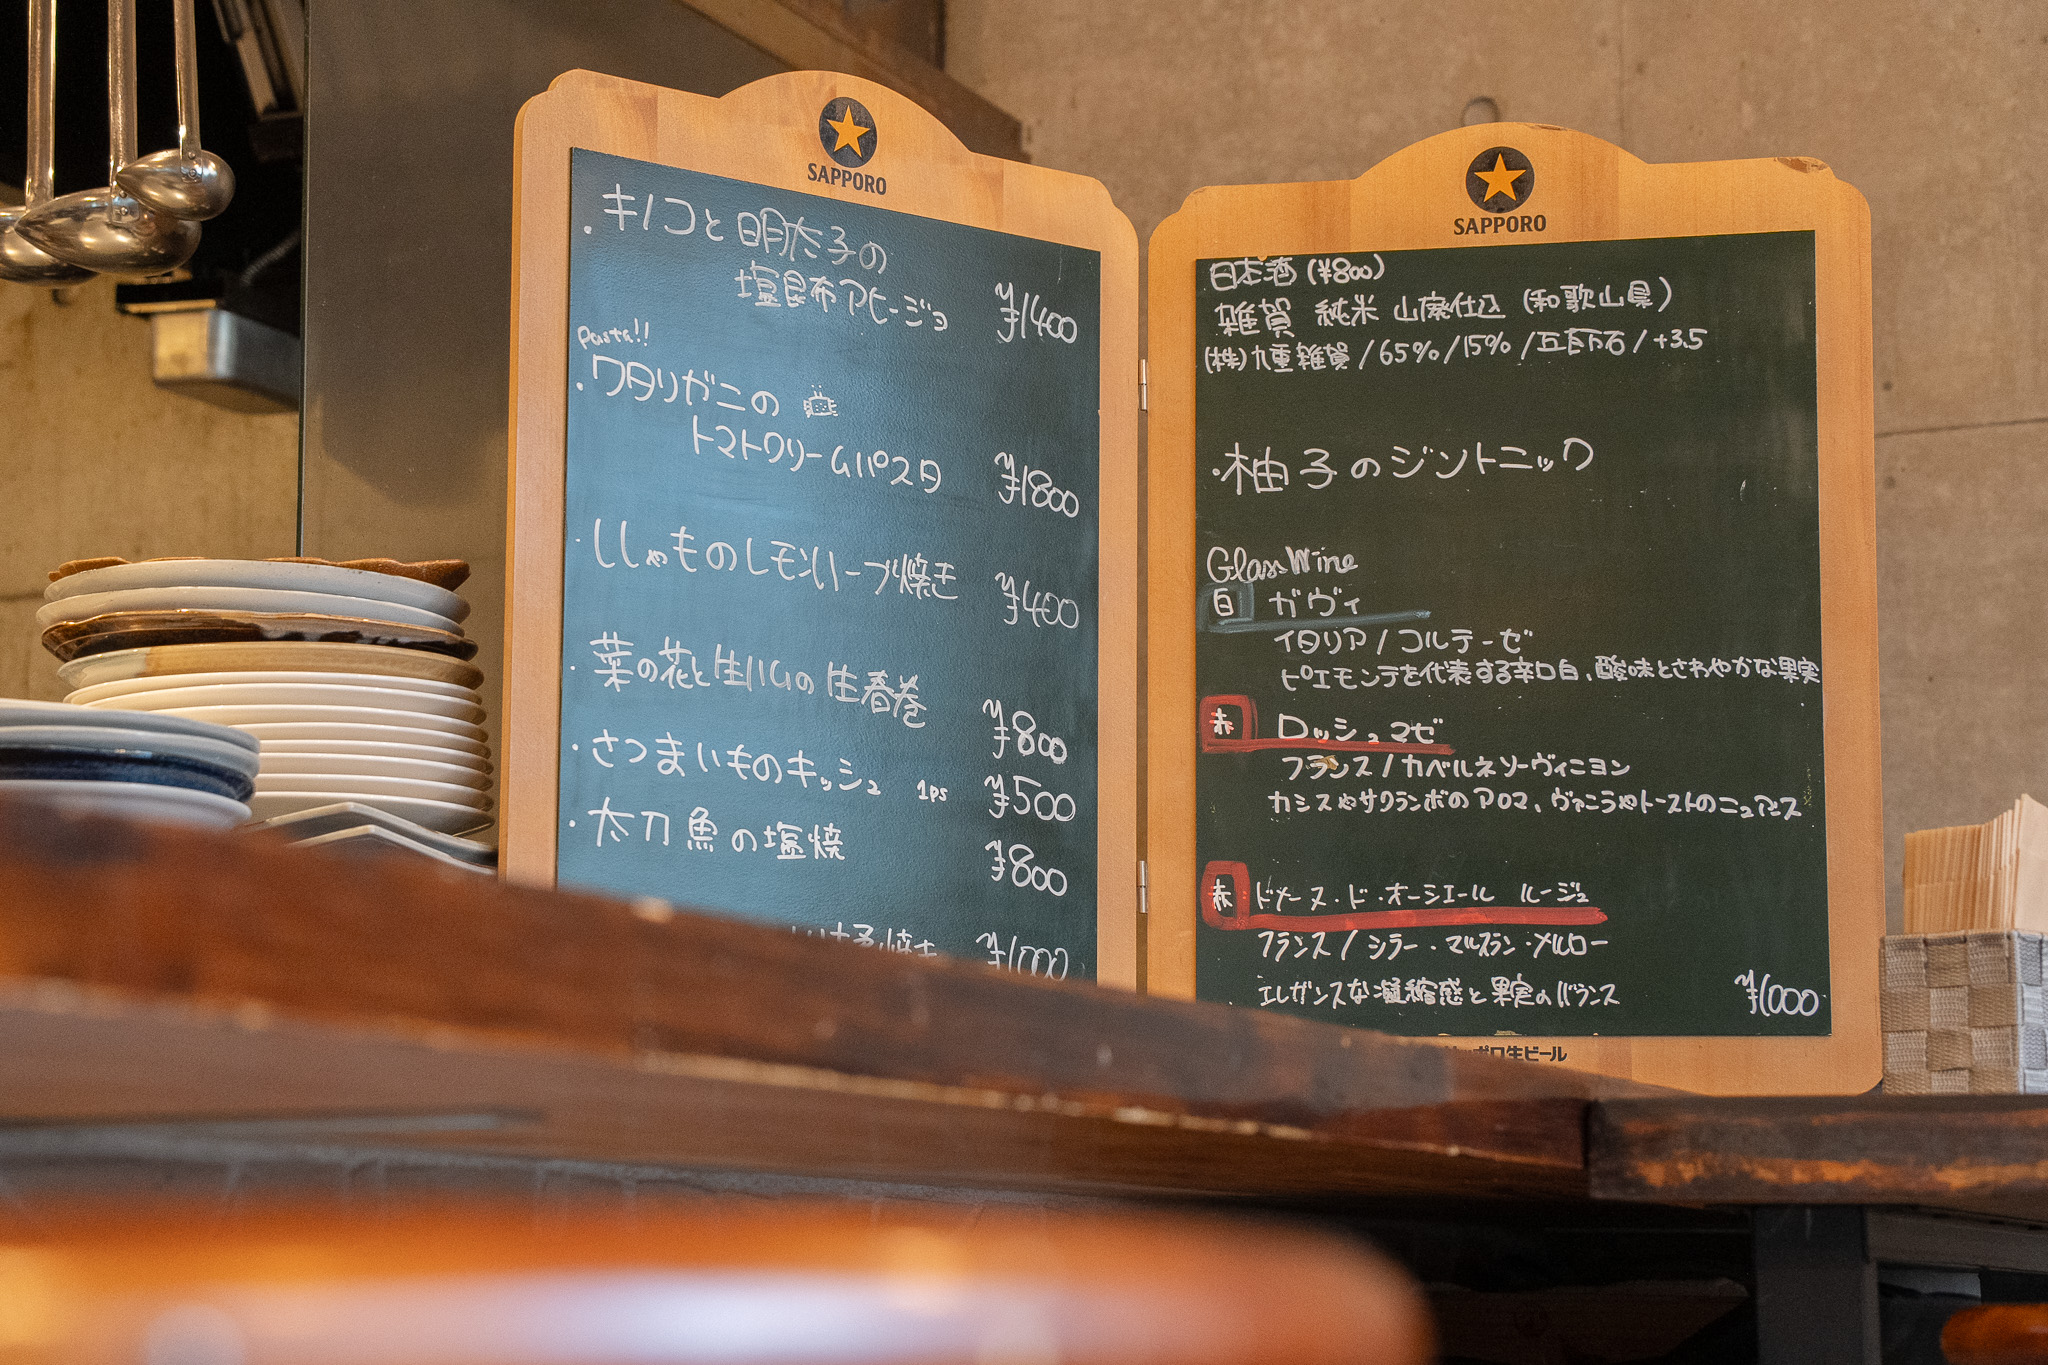 SAPPORO
・キノコと明太子の
塩昆布アヒージョ ¥1400
Pasta!!
・ワタリガニの
トマトクリームパスタ ¥1800
・ししゃものレモンハーブ焼き ¥400
・菜の花と生ハムの生春巻 ¥800
・さつまいものキッシュ 1ps ¥500
・太刀魚の塩焼 ¥800
焼き ¥1000
SAPPORO
日本酒(¥800)
雑賀 純米 山廃仕込 (和歌山県)
(株)九重雑賀/65%/15%/五百万石/+3.5
・柚子のジントニック
Glass Wine
白 ガヴィ
イタリア/コルテーゼ
ピエモンテを代表する辛口白、酸味とさわやかな果実
赤 ロッシュマゼ
フランス/カベルネソーヴィニヨン
カシスやサクランボのアロマ、ヴァニラやトーストのニュアンス
赤 ドメーヌ・ド・オーシエール ルージュ
フランス/シラー・マルスラン・メルロー
エレガンスな凝縮感と果実のバランス ¥1000
サッポロ生ビール